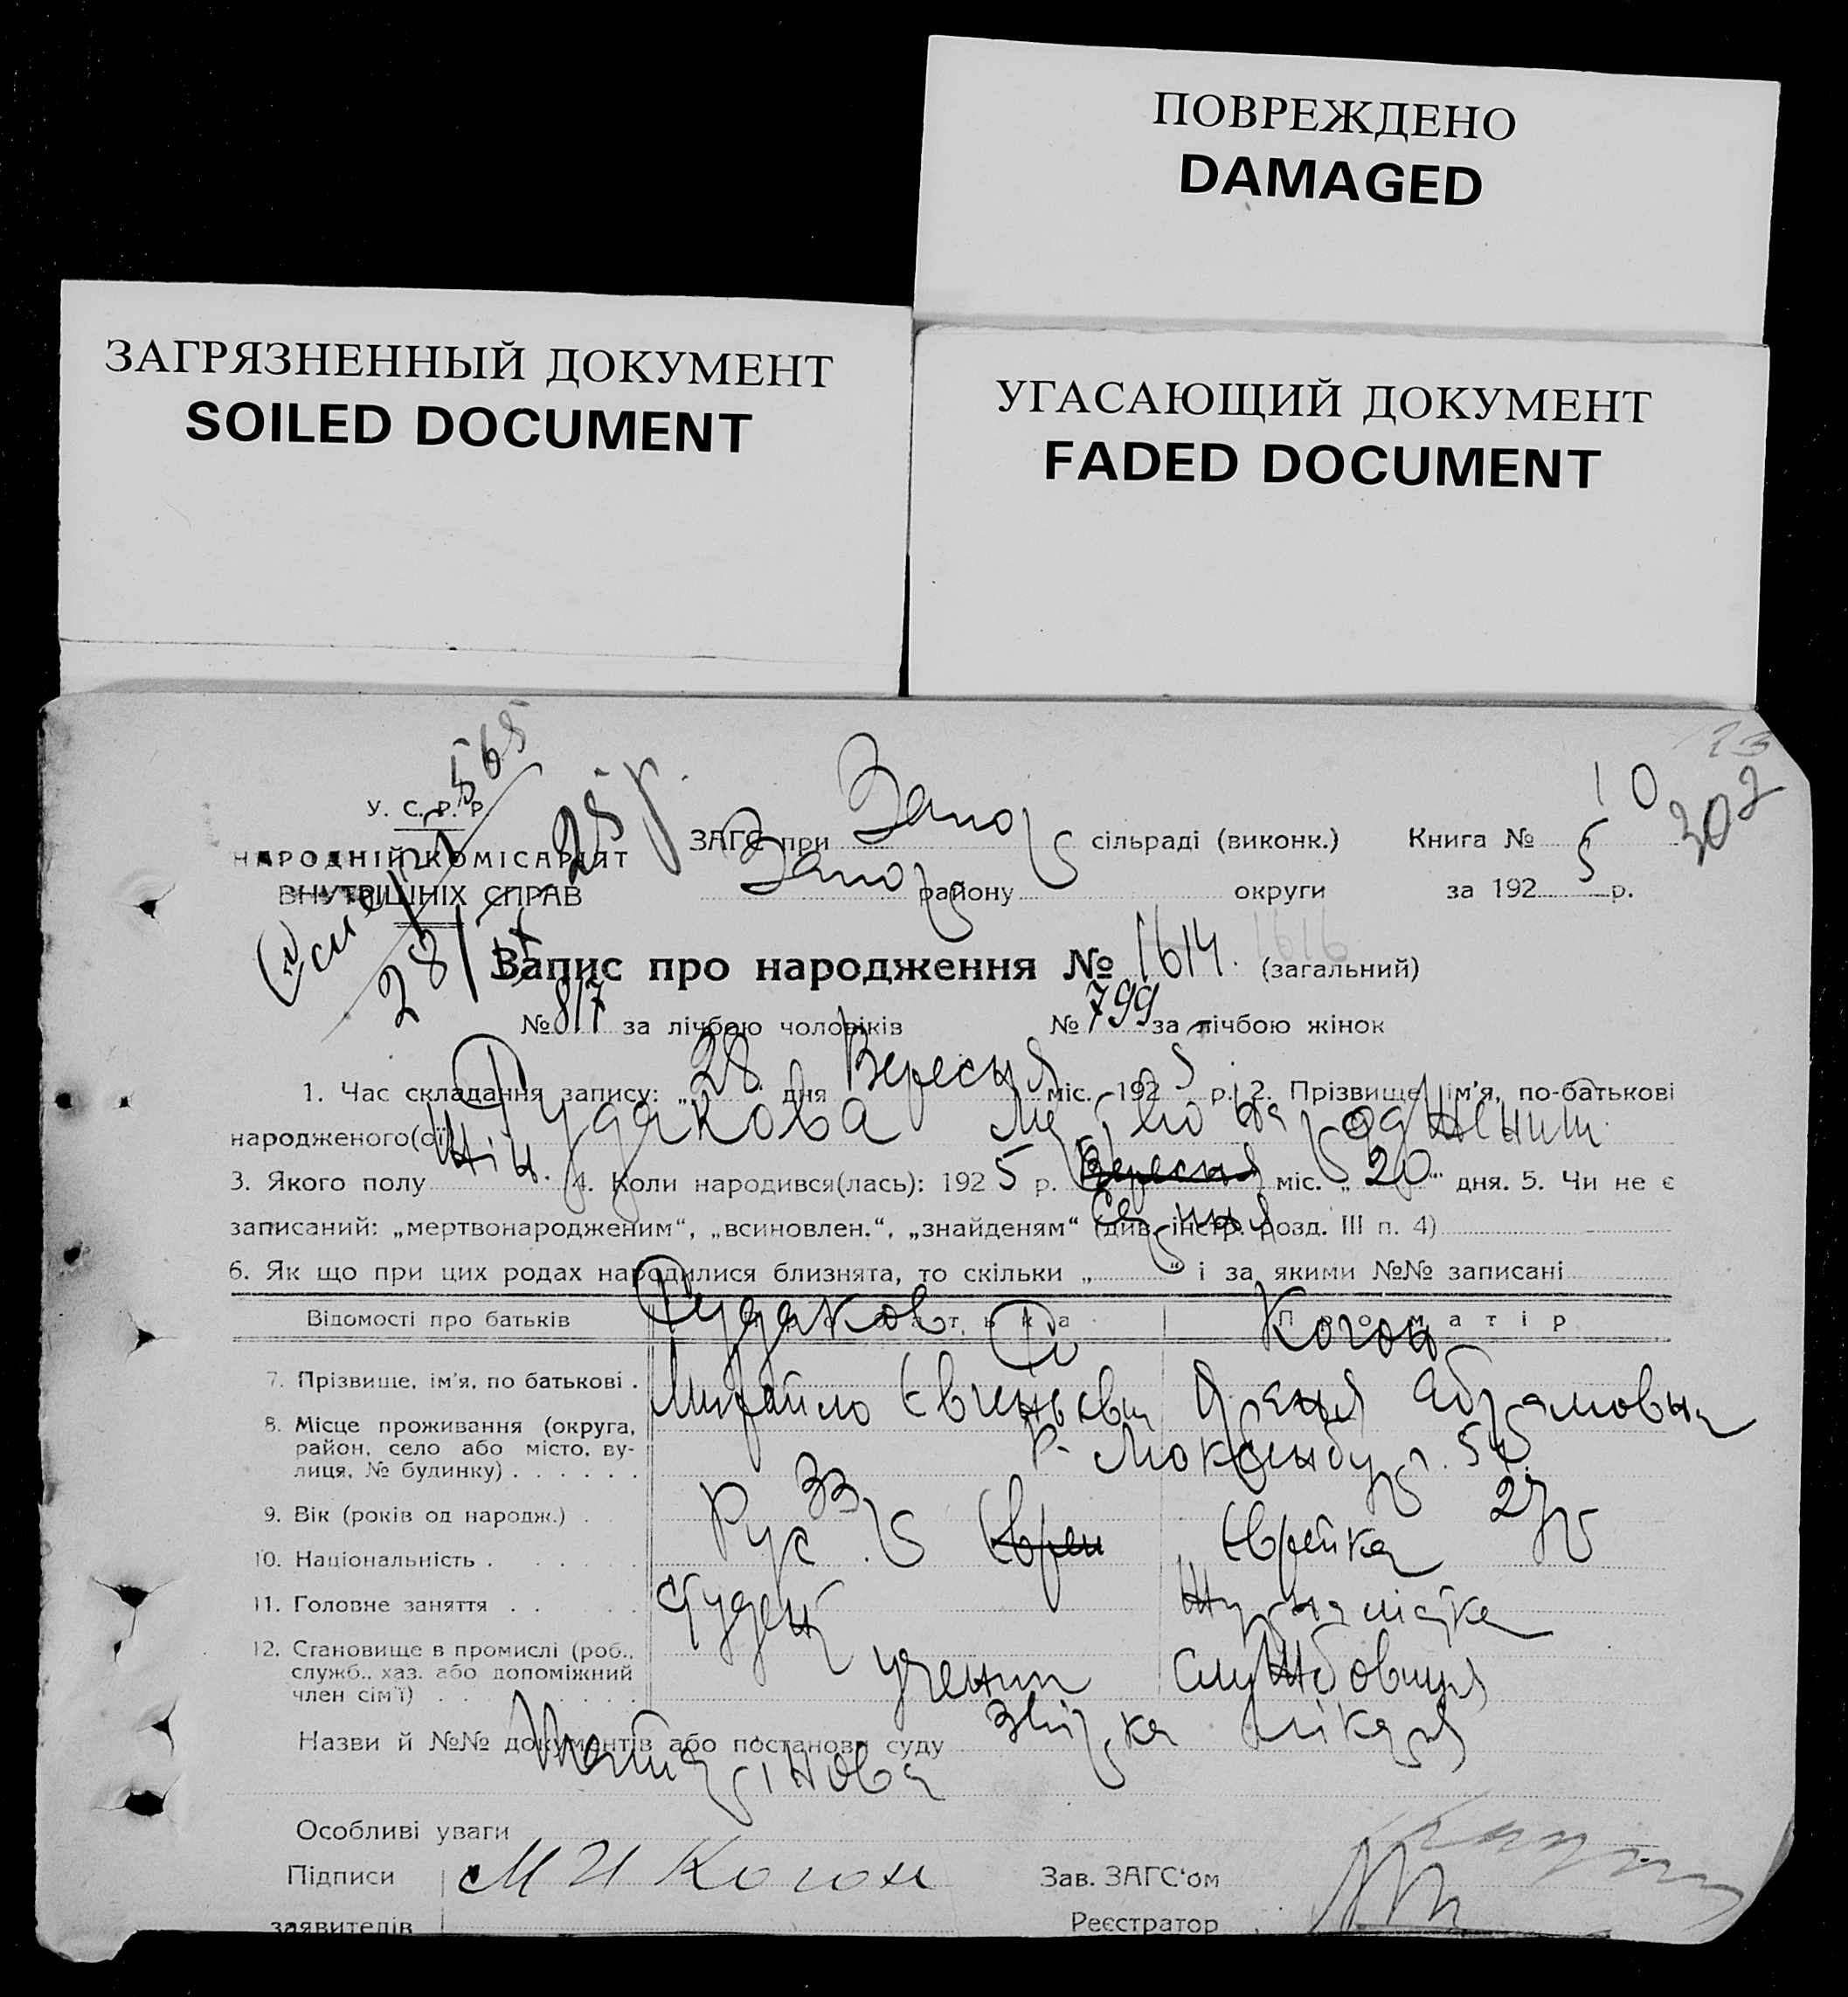 ПОВРЕЖДЕНО
DAMAGED
ЗАГРЯЗНЕННЫЙ ДОКУМЕНТ
SOILED DOCUMENT
УГАСАЮЩИЙ ДОКУМЕНТ
FADED DOCUMENT
10
302
565
У. С. Р. Р.
НАРОДНІЙ КОМІСАРІЯТ
ВНУТРІШНІХ СПРАВ
28/IX 25 р.
ЗАГС при Запор сільраді (виконк.) Книга № 5
Запор району округи за 192 5 р.
Запис про народження № 1614. 1616 (загальний)
№ 817 за лічбою чоловіків № 799 за лічбою жінок
1. Час складання запису: „ 28 дня Вересня міс. 192 5 р. 2. Прізвище, ім'я, по-батькові
народженого(ої) Рудакова
3. Якого полу жін. 4. Коли народився(лась): 192 5 р. Вересня міс. „ 20 " дня. 5. Чи не є
Серпня
записаний: „мертвонародженим", „всиновлен.", „знайденям" (див. інстр. розд. III п. 4)
6. Як що при цих родах народилися близнята, то скільки „ " і за якими №№ записані
Відомості про батьків Про батька Про матір
Рудаков Коган
7. Прізвище, ім'я, по батькові . Михайло Євгеньєви Абрамовна
8. Місце проживання (округа, район, село або місто, вулиця, № будинку) . . . . . . Р. Люксембург. 54
9. Вік (років од народж.) . 33 р 27 р
10. Національність . Рус. Єврей Єврейка
11. Головне заняття . . Студент Журналістка
12. Становище в промислі (роб., служб., хаз. або допоміжний член сім'ї) . учений Службовиця
Назви й №№ документів або постанови суду Звірка лікаря
Особливі уваги
Підписи М И Коган Зав. ЗАГС'ом
заявителів Реєстратор